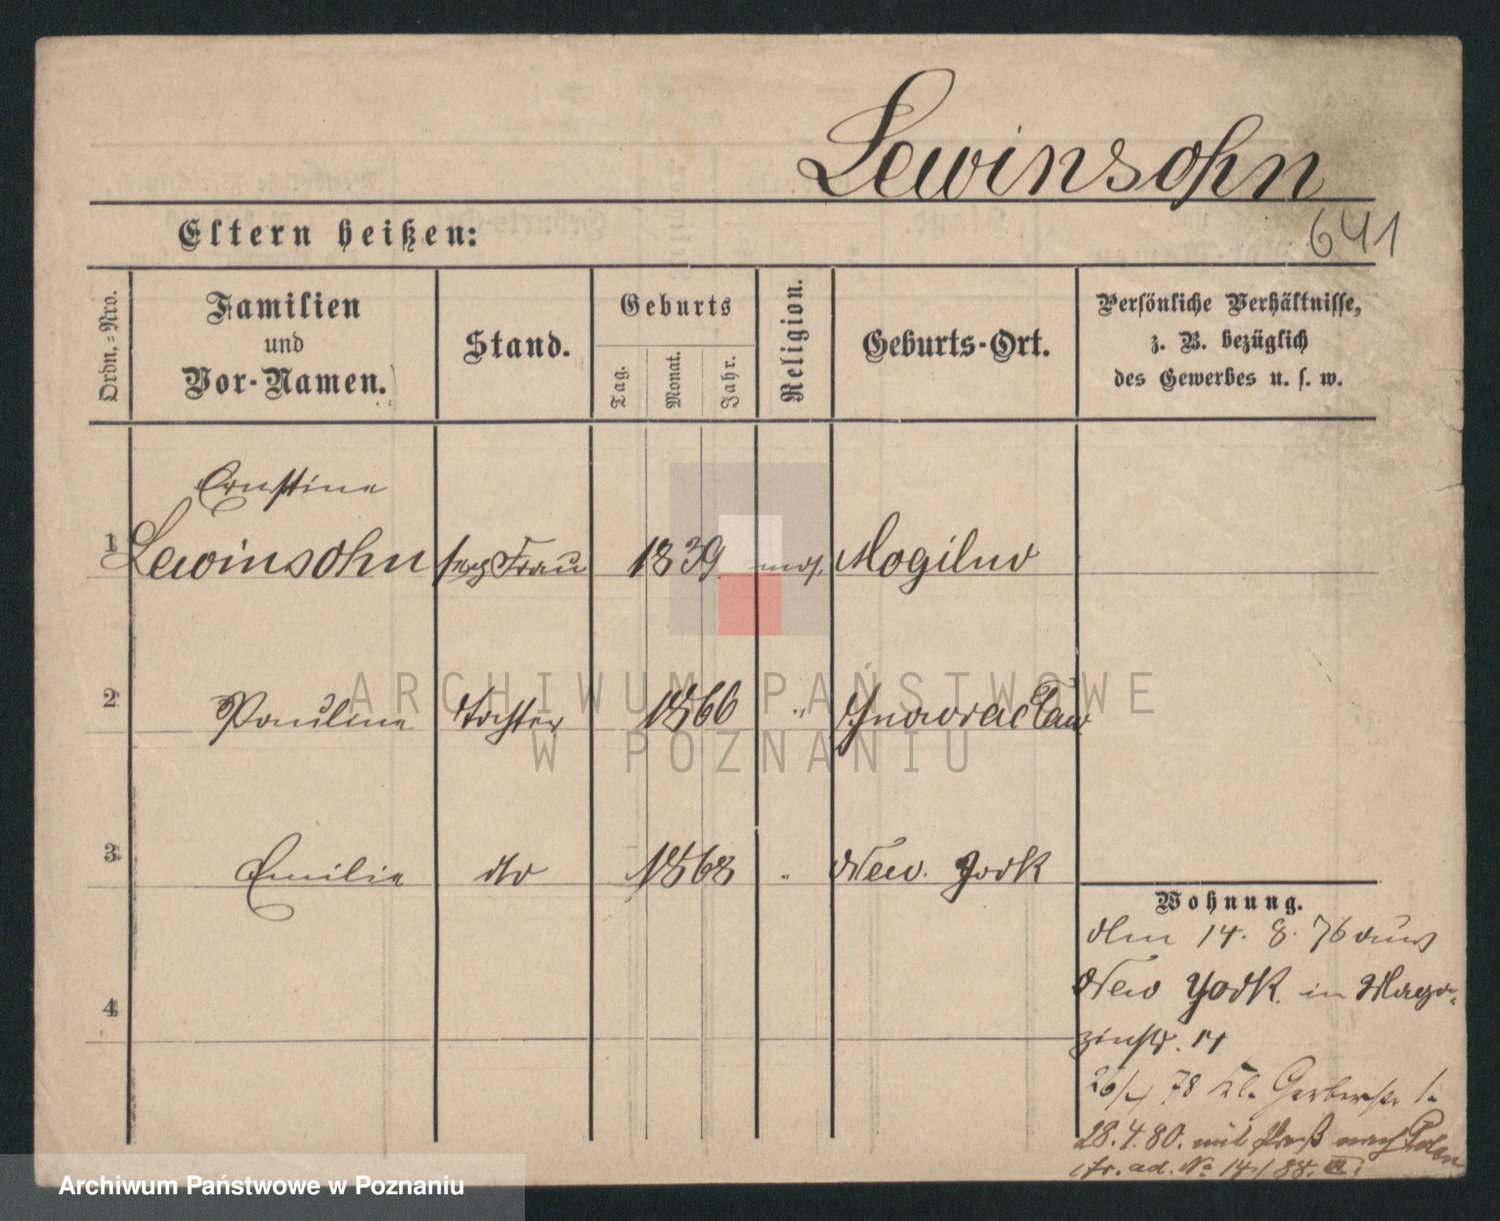 Lewinsohn
641
Eltern heißen:
Ordn.-Nro.
Familien
und
Vor-Namen.
Stand.
Geburts
Tag.
Monat.
Jahr.
Religion.
Geburts-Ort.
Persönliche Verhältnisse,
z. B. bezüglich
des Gewerbes u. s. w.
Ernstine
1 Lewinsohn Frau 1839 mos. Mogilno
2 Pauline Tochter 1866 " Inowraclaw
3 Emilie dto 1868 " New. York
Wohnung.
den 14. 8. 76 aus
New York. in Maga-
zinstr. 14
26/4 78 Kl. Gerberstr 1.
28.4.80. mit Paß nach Polen
cfr. ad. No 14/88. III.
4
ARCHIWUM PAŃSTWOWE
W POZNANIU
Archiwum Państwowe w Poznaniu